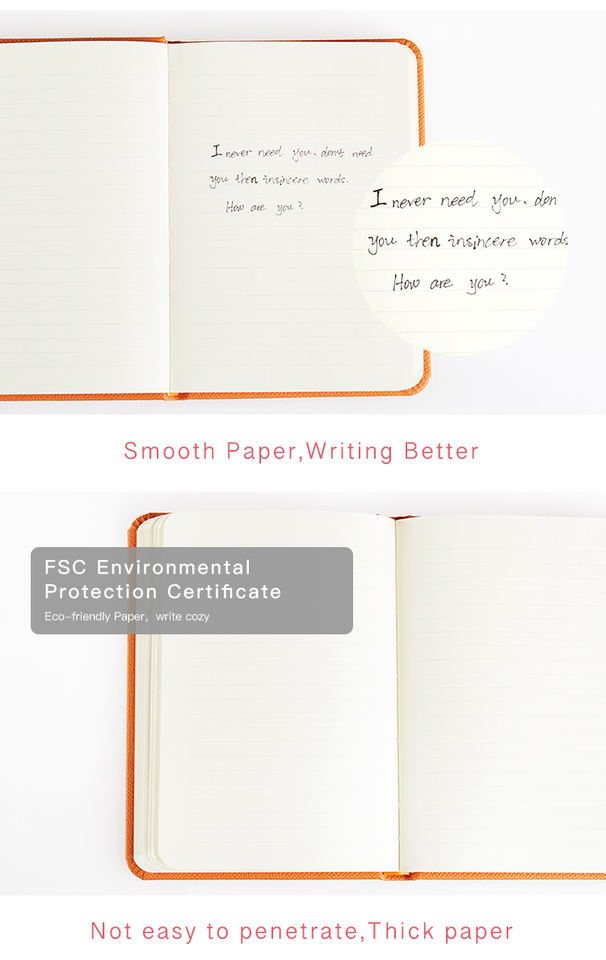 I never need you. don't need
you then insincere words.
How are you?
I never need you. don
you then insincere words
How are you?
Smooth Paper,Writing Better
FSC Environmental
Protection Certificate
Eco-friendly Paper, write cozy
Not easy to penetrate,Thick paper